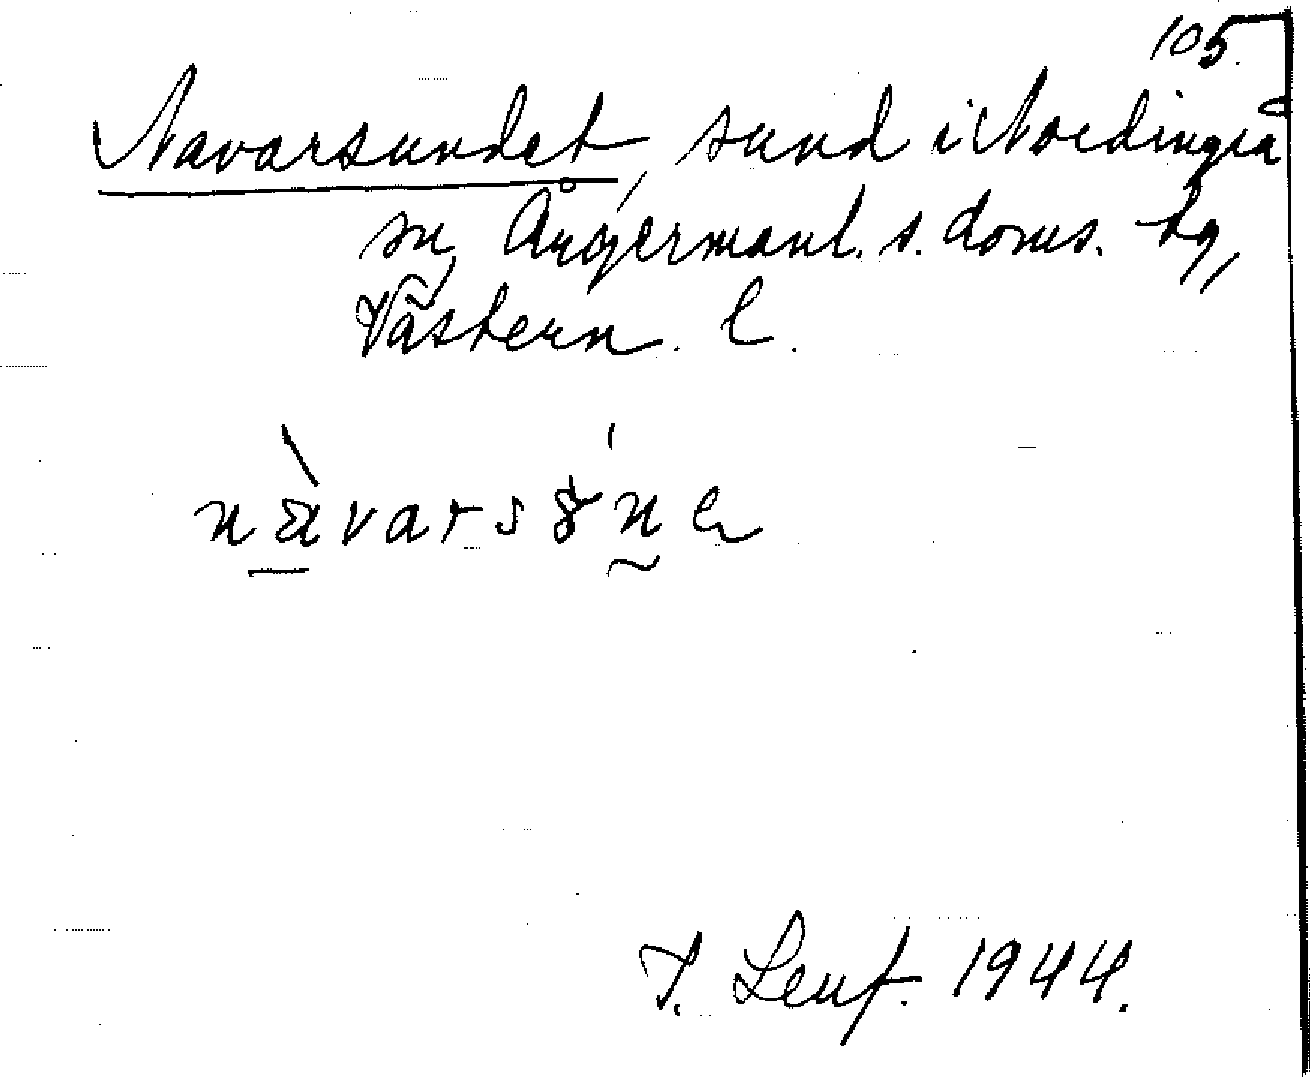 105.
Navarsundet, sund i Nordingrå
sn, Ångermanl. s. doms. hg,
Västern. l.
nàvarsó̈ne
T. Lenf. 1944.